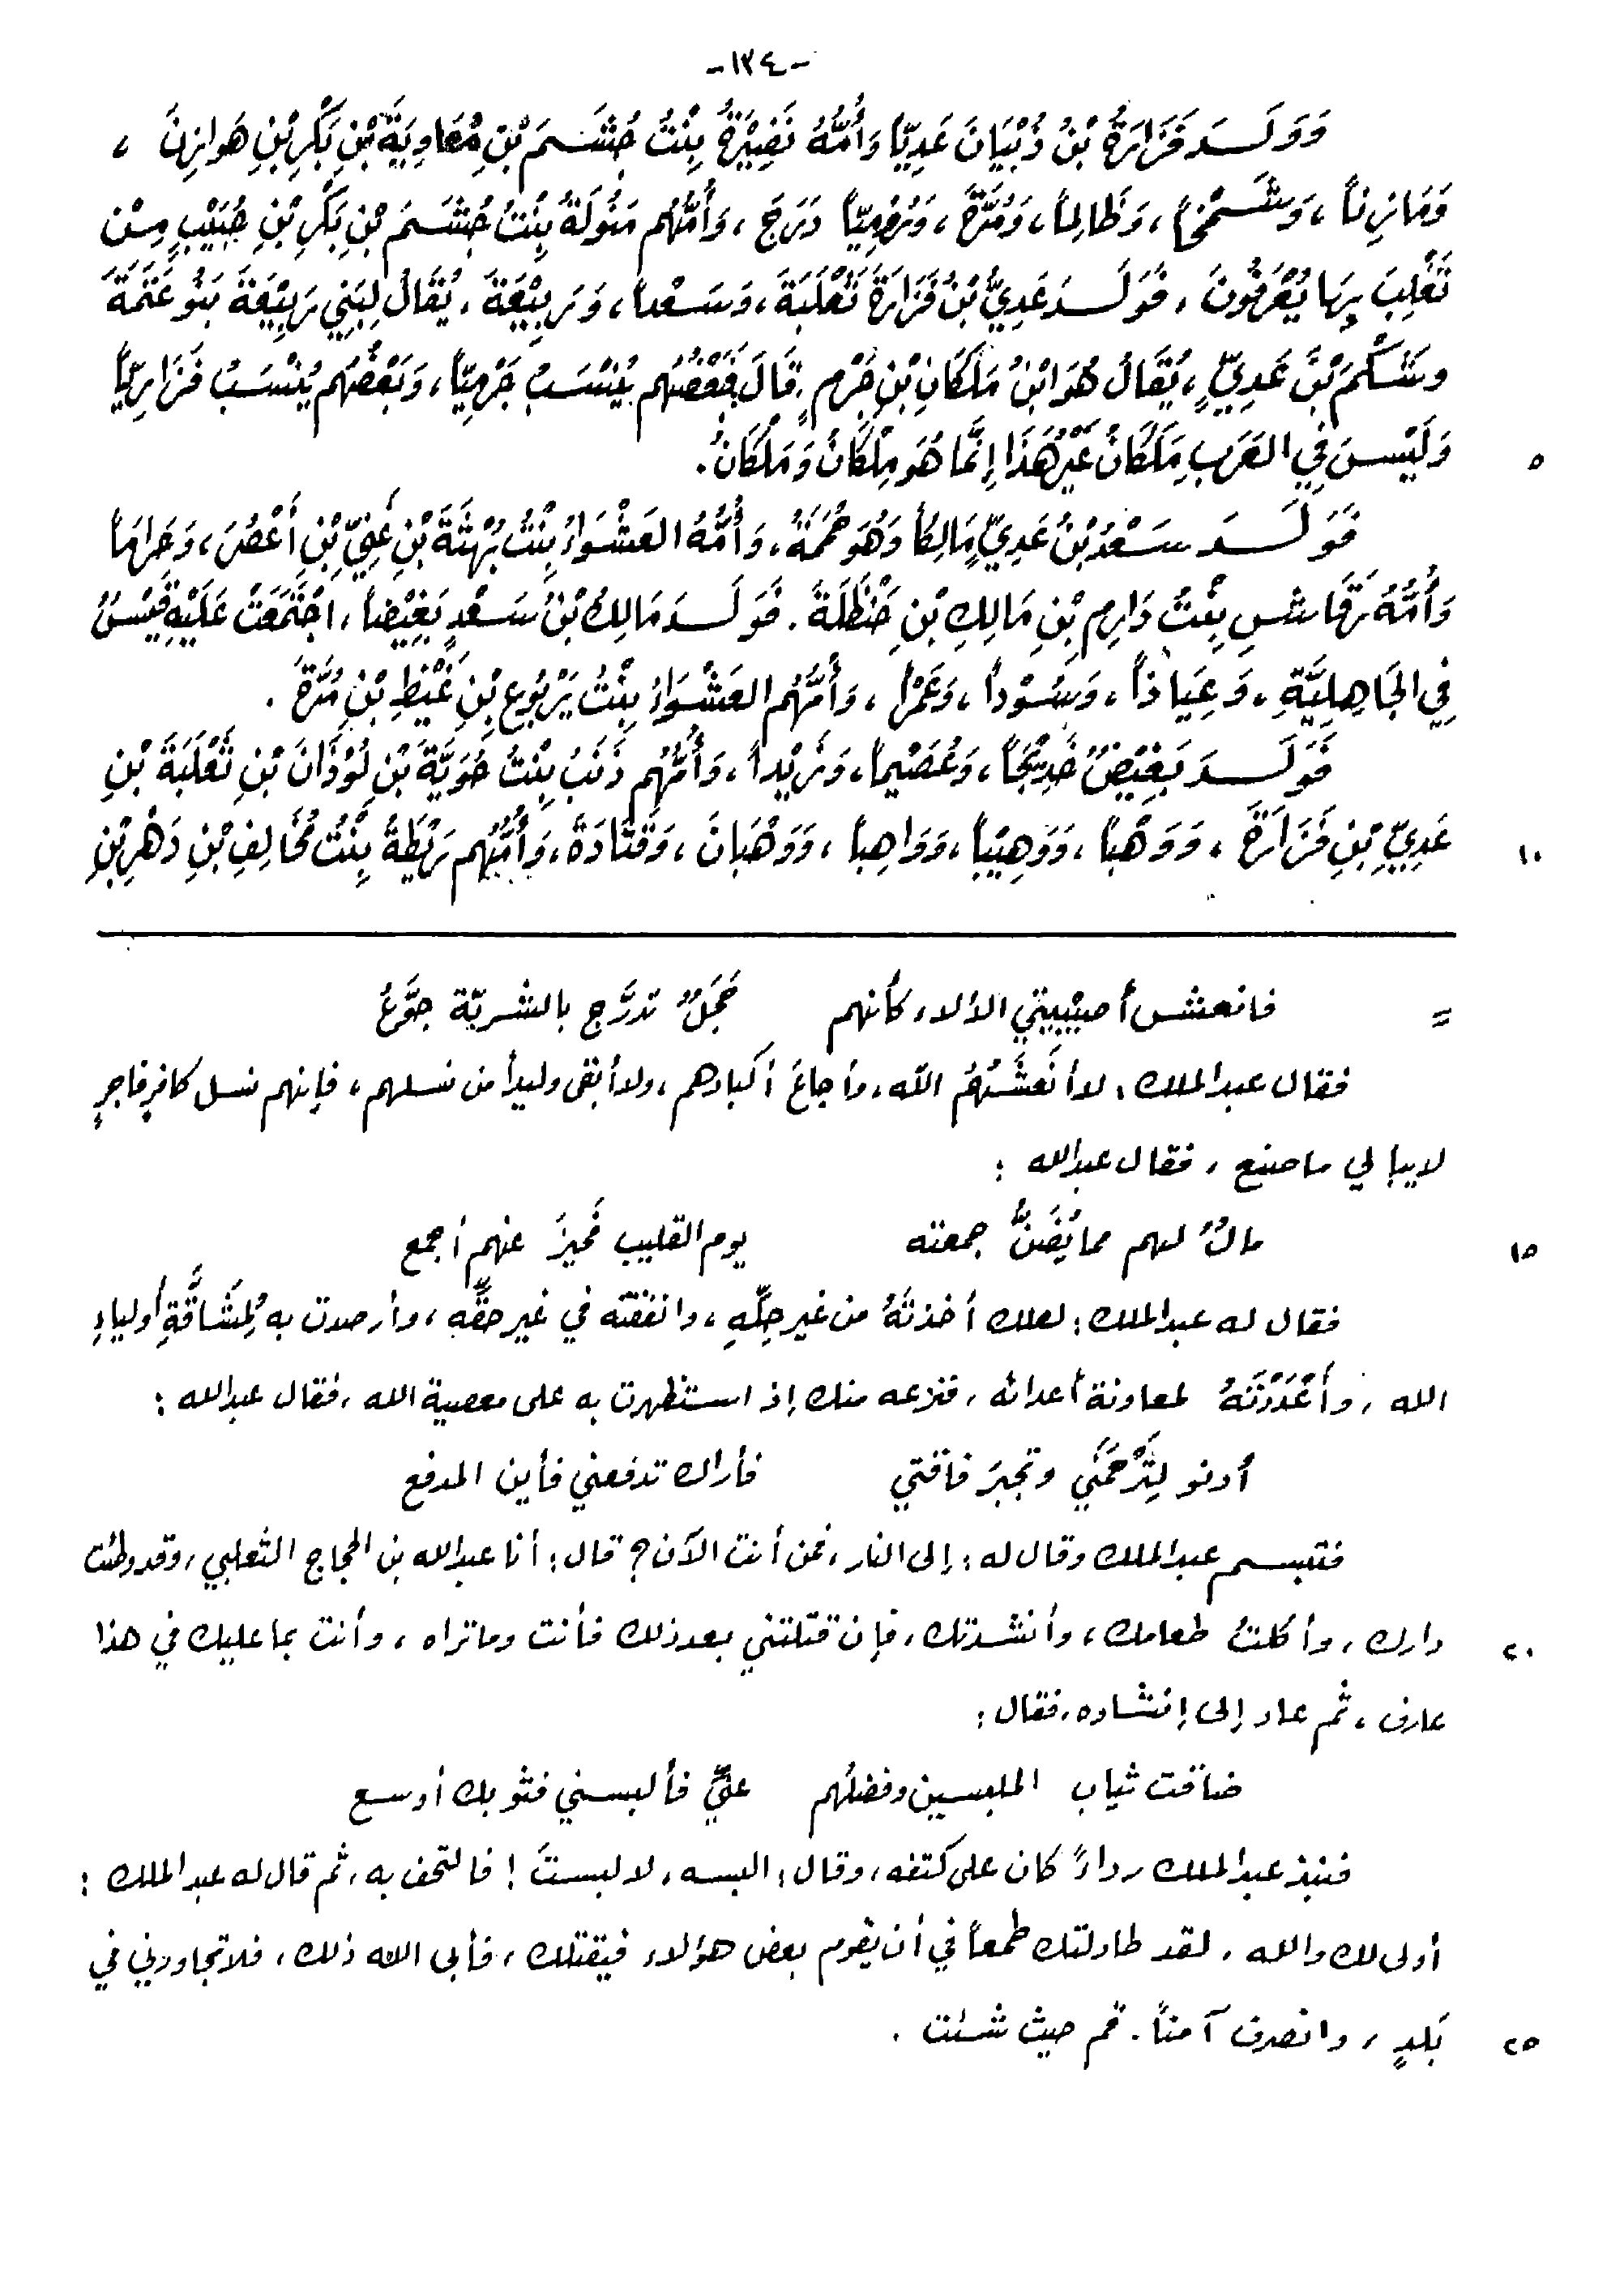 -١٣٤-
وَوَلَـدَ فَزَارَةُ بْنُ ذُبْيَانَ عَدِيّاً وَأُمُّهُ نَضِيْرَةُ بِنْتُ جُشَـمَ بْنِ مُعَاوِيَةَ بْنِ بَكْرِ بْنِ هَوازِنَ ،
وَمَازِناً ، وَشَـمْخاً ، وَظَالِماً ، وَمُرَّةَ ، وَرُومِيّاً دَرَجَ ، وَأُمُّهُم مَنُولَةُ بِنْتُ جُشَـمَ بْنِ بَكْرِ بْنِ حُبَيْبٍ مِـنْ
تَغْلِبَ بِهَا يُعْرَفُونَ ، فَوَلَـدَ عَدِيُّ بْنُ فَزَارَةَ ثَعْلَبَةَ ، وَسَـعْداً ، وَرَبِيْعَةَ ، يُقَالُ لِبَنِي رَبِيْعَةَ بَنُو عَثَمَةَ
وشَكْمَ بْنَ عَدِيٍّ ، يُقَالُ هُوَ ابْنُ مَلَكَانِ بْنِ جَرْمٍ . قَالَ فَبَعْضُهُم يُنْسَبُ جَرْمِيّاً ، وَبَعْضُهُم يُنْسَبُ فَزَارِيّاً
وَلَيْسَ فِي العَرَبِ مَلَكَانُ غَيْرُ هَذَا إِنَّمَا هُوَ مِلْكَانُ وَمَلْكَانُ .
٥
فَوَلَـدَ سَـعْدُ بْنُ عَدِيٍّ مَالِكاً وَهُوَ حُمَمَةُ ، وَأُمُّهُ العَشْوَاءُ بِنْتُ بُهْثَةَ بْنِ غَنِيِّ بْنِ أَعْصُرَ ، وَحَرَاماً
وَأُمُّهُ رَقَاشِ بِنْتُ دَارِمِ بْنِ مَالِكِ بْنِ حَنْظَلَةَ . فَوَلَـدَ مَالِكُ بْنُ سَـعْدٍ بَغِيْضاً ، اجْتَمَعَتْ عَلَيْهِ قَيْسُ
فِي الجَاهِلِيَّةِ ، وَعِيَاذاً ، وَسُوْداً ، وَعَمْراً ، وَأُمُّهُم العَشْوَاءُ بِنْتُ يَرْبُوعِ بْنِ غَيْظِ بْنِ مُرَّةَ .
فَوَلَـدَ بَغِيْضٌ خَدِيْجاً ، وَعُصَيْماً ، وَزَيْداً ، وَأُمُّهُم ذَنَبُ بِنْتُ جُوَيَّةَ بْنِ لُوْذَانَ بْنِ ثَعْلَبَةَ بْنِ
عَدِيِّ بْنِ فَزَارَةَ ، وَوَهْباً ، وَوَهِيْباً ، وَوَاهِباً ، وَوَهْبَانَ ، وَقَتَادَةَ ، وَأُمُّهُم رَيْطَةُ بِنْتُ مُخَالِفِ بْنِ دَهْرِ بْنِ
١٠
= فانعش أصَيْبِيَتي الألاء كأنهم حَجَلٌ تدرَّج بالشربّة جوَّعُ
فقال عبد الملك : لا أَنعَشَهُمُ الله ، وأجاعَ أكبادهم ، ولا أبقى وليداً من نسلهم ، فإنهم نسل كافرٍ فاجرٍ
لا يبالي ما صنع ، فقال عبدالله :
مالٌ لهم مما يُضَنُّ جمعته يوم القليب فَحِيزَ عنهم أجمع
١٥
فقال له عبد الملك : لعلك أخذتَهُ من غير حِلِّهِ ، وانفقته في غير حقِّه ، وأرصدت به لِمُشَاقَّةِ أولياءِ
الله ، وأعْدَدْتَهُ لمعاونة أعدائه ، فنزعه منك إذ استظهرت به على معصية الله ، فقال عبدالله :
أدنو لِتَرْحَمَني وتجبرَ فاقتي فأراك تدفعني فأين المدفع
فتبسم عبد الملك وقال له : إلى النار ، فمن أنت الآن ؟ قال : أنا عبدالله بن الحجاج الثعلبي ، وقد وطئت
دارك ، وأكلتُ طعامك ، وأنشدتك ، فإن قتلتني بعد ذلك فأنت وما تراه ، وأنت بما عليك في هذا
٢٠
عارف ، ثم عاد إلى إنشاده ، فقال :
ضاقت ثياب الملبسين وفضلهم عليَّ فألبسني فثوبك أوسع
فنبذ عبد الملك رداءً كان على كتفه ، وقال : البسه ، لا لبستَ ! فالتحف به ، ثم قال له عبد الملك :
أولى لك والله ، لقد طاولتك طمعاً في أن يقوم بعض هؤلاء فيقتلك ، فأبى الله ذلك ، فلا تجاورني في
بَلدٍ ، وانصرف آمناً . قم حيث شئت .
٢٥